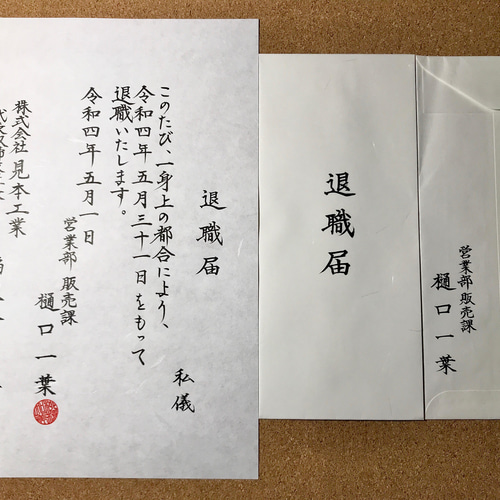 退職届
私儀
このたび、一身上の都合により、
令和四年五月三十一日をもって
退職いたします。
令和四年五月一日
営業部 販売課
樋口一葉
株式会社 見本工業
代表取締役
退職届
営業部 販売課
樋口一葉